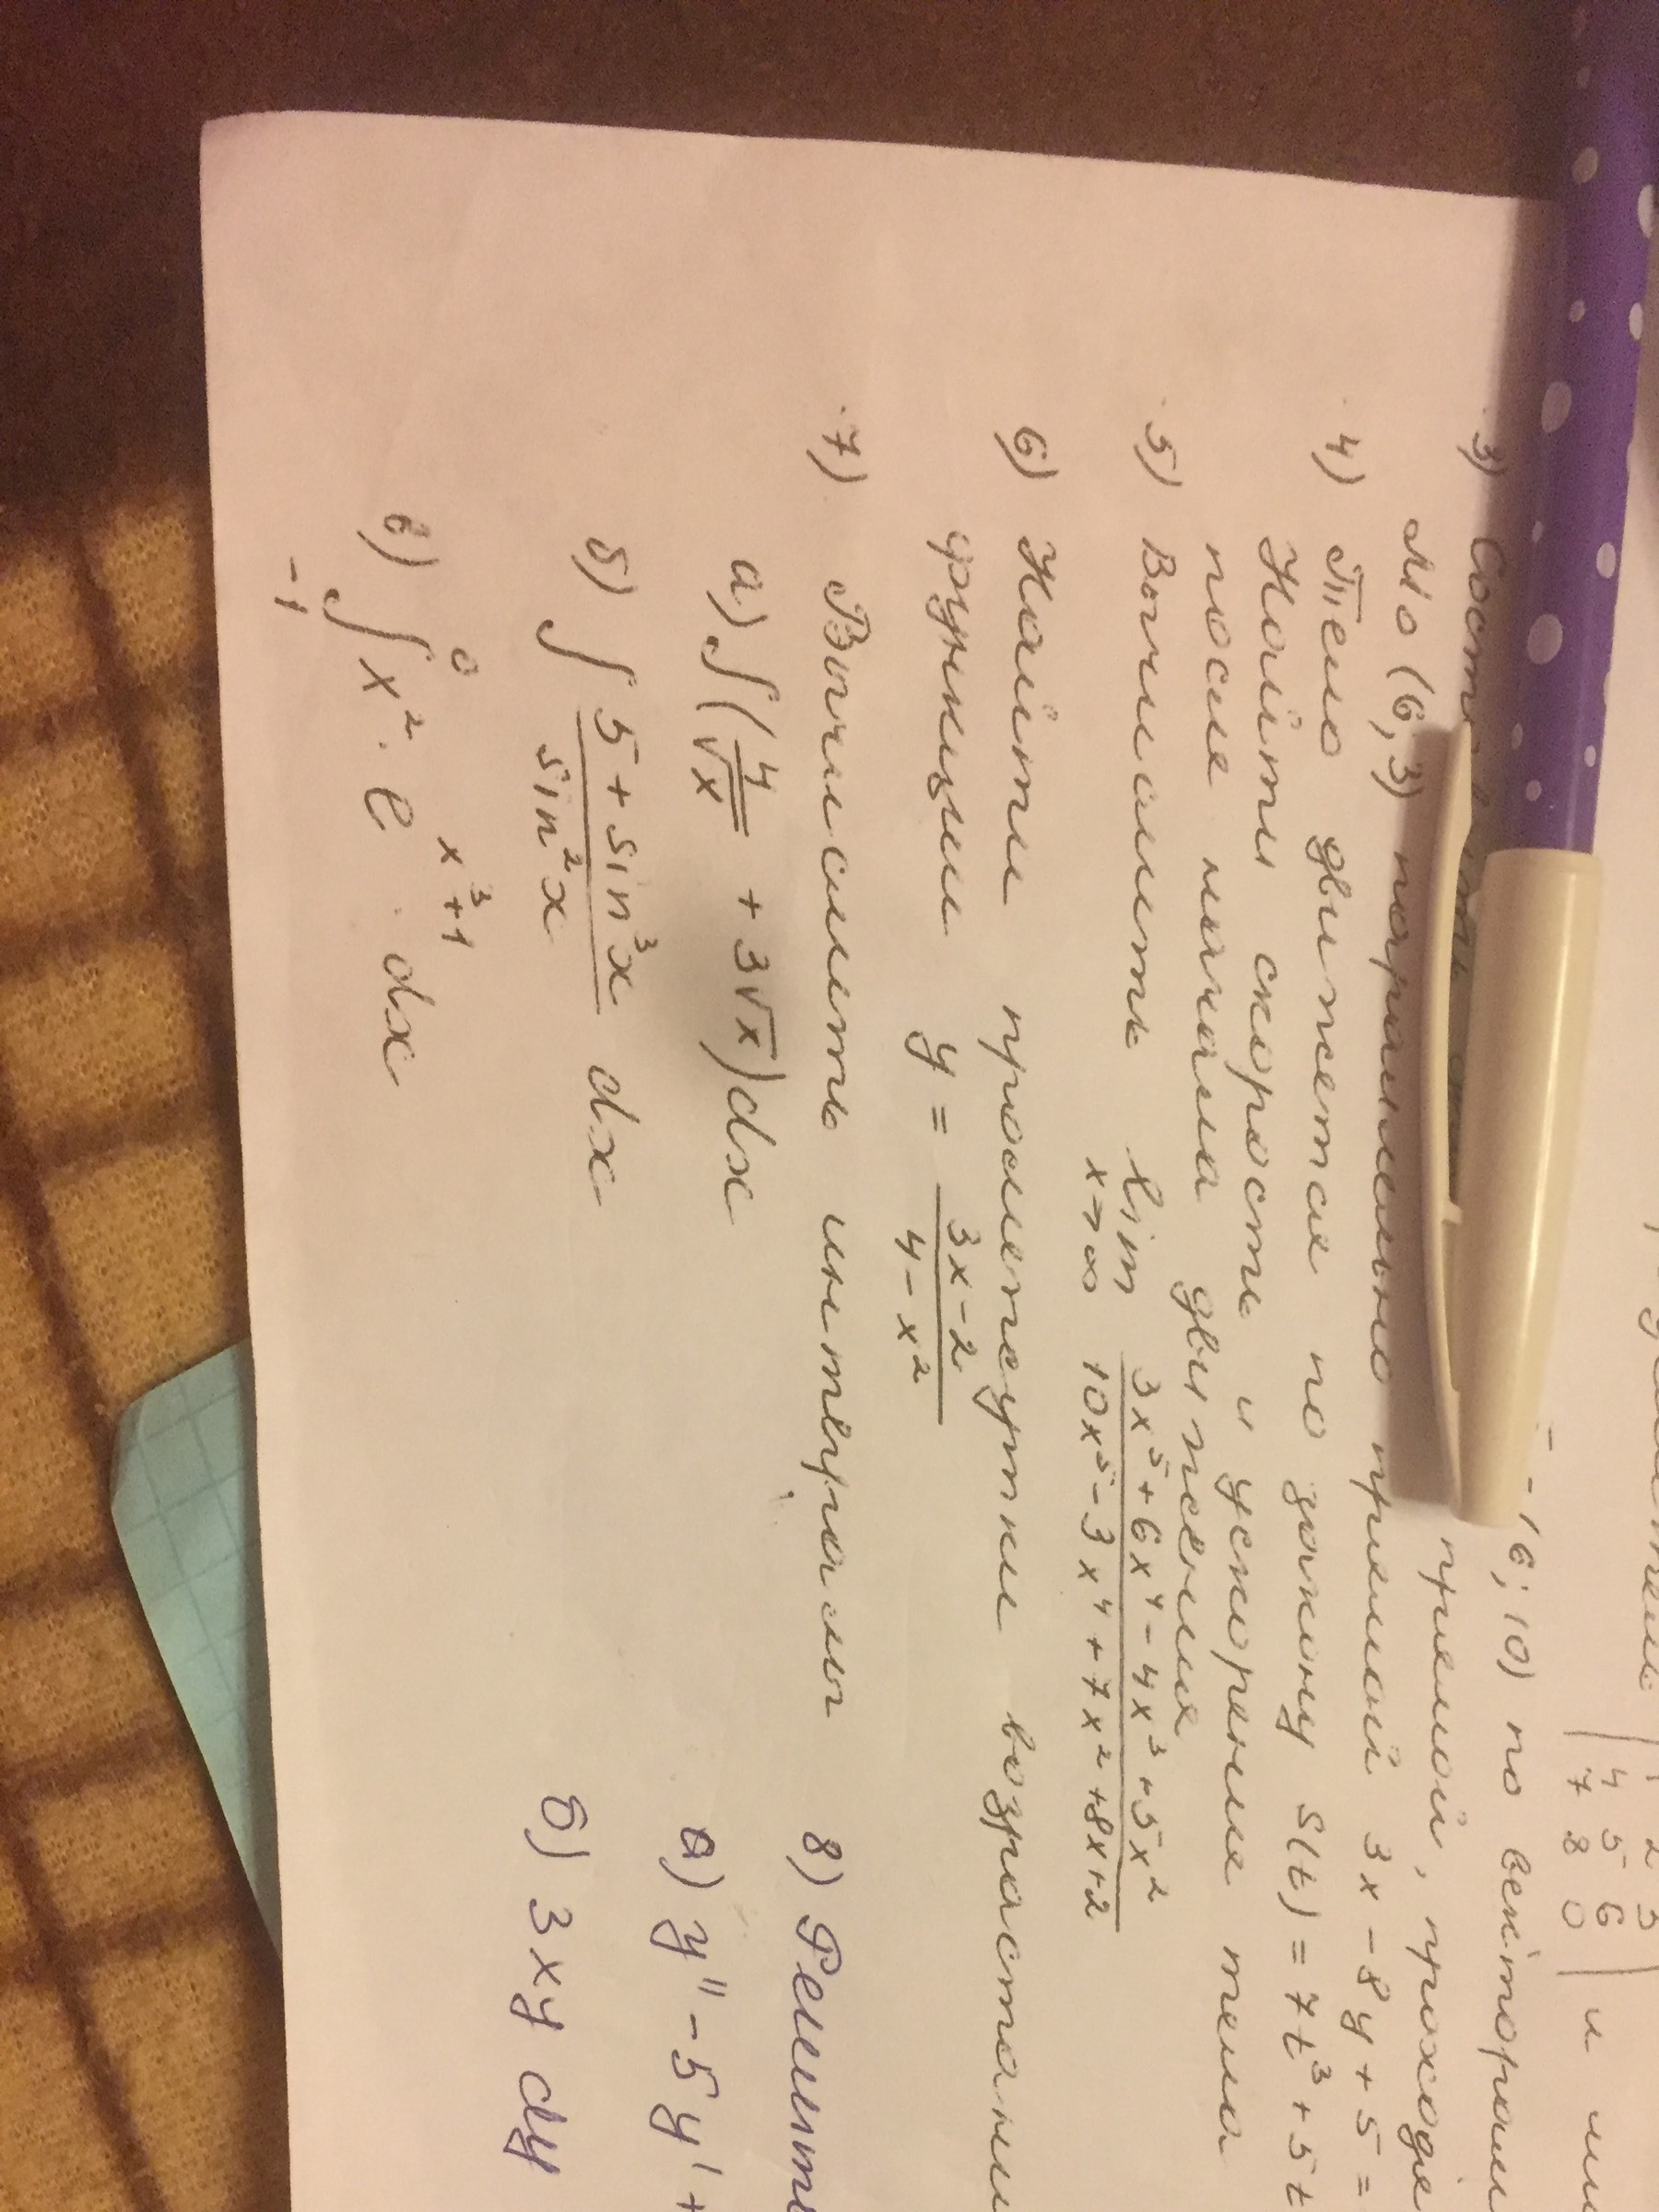 1 2 3
4 5 6
7 8 0 и
6; 10) по векторам
3) прямой, проходя
Мо (6,3) параллельно прямой 3x - 8y + 5 =
4) Тело движется по закону S(t) = 7t³ + 5t
Найти скорость и ускорение тела
после начала движения
5) Вычислить lim x→∞ (3x⁵ + 6x⁴ - 4x³ + 5x²) / (10x⁵ - 3x⁴ + 7x² + 8x + 2)
6) Найти промежутки возрастани
функции y = (3x - 2) / (4 - x²)
7) Вычислить интегралы
а) ∫(4/√x + 3√x)dx
б) ∫ (5 + sin³x) / (sin²x) dx
в) ∫₋₁⁰ x² · e^(x³+1) · dx
8) Решить
а) y'' - 5y' +
б) 3xy dy